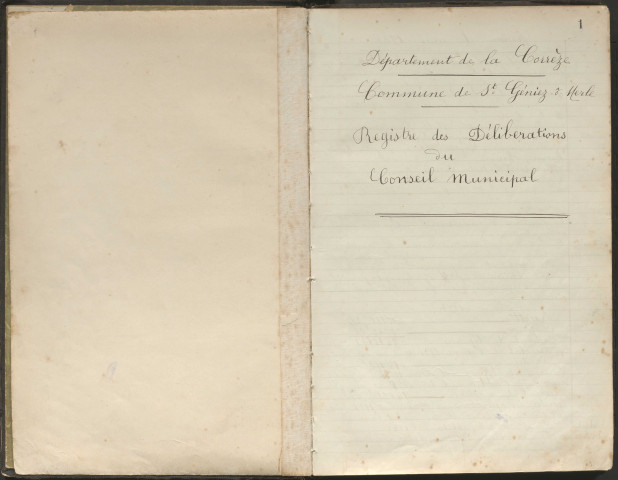 1
Département de la Corrèze
Commune de St. Géniez ô Merle
Registre des Délibérations
du
Conseil Municipal